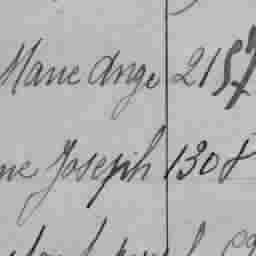 Marie Ange 2157
ne Joseph 1308